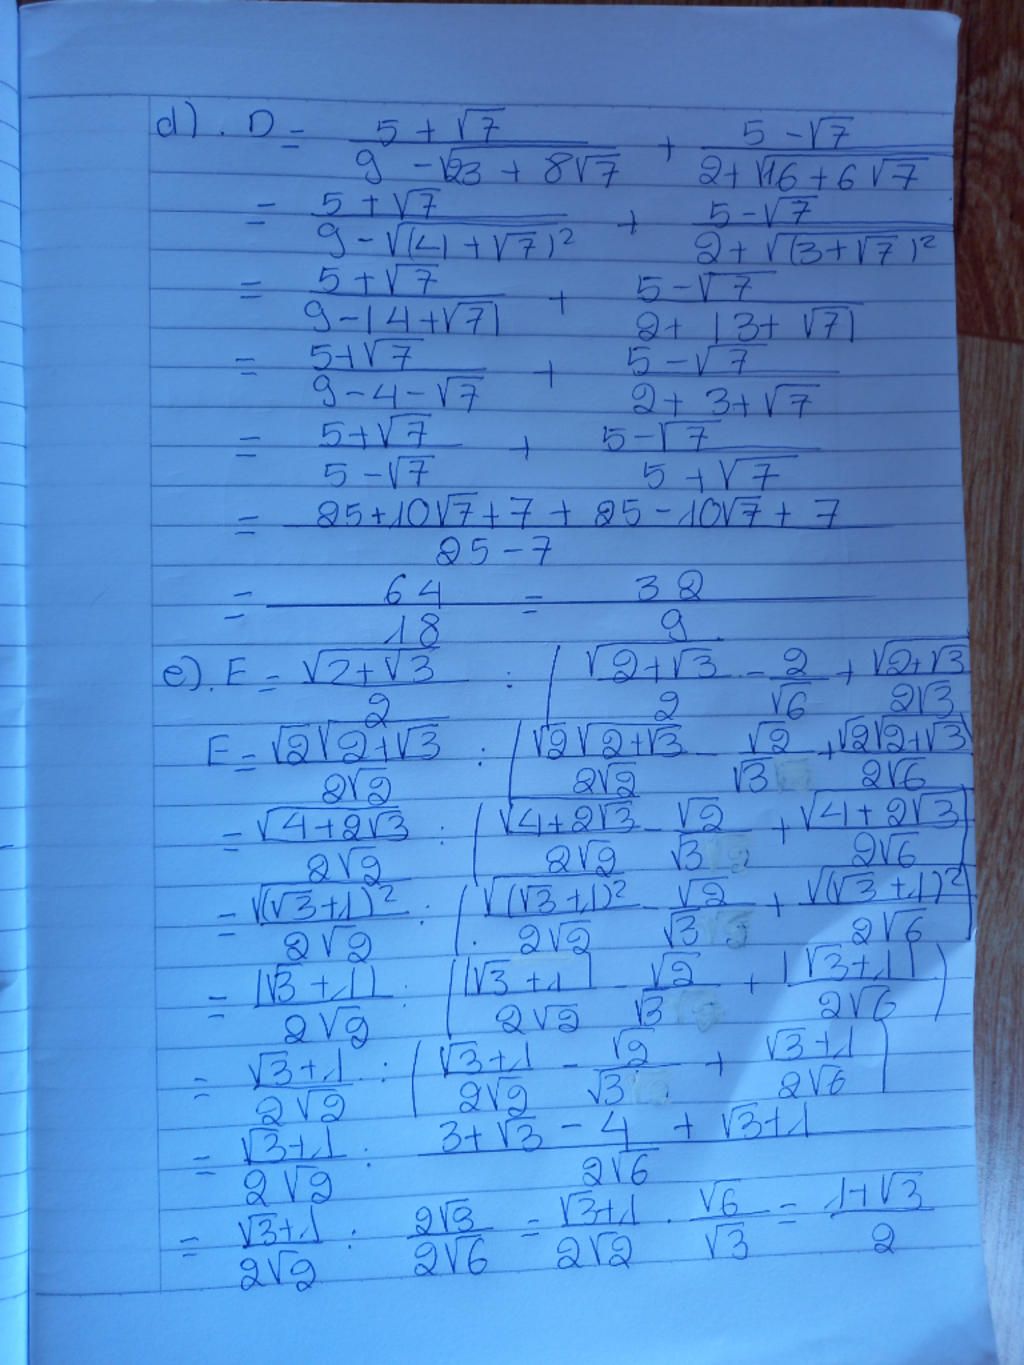 d). D = (5 + √7)/(9 - √(23 + 8√7)) + (5 - √7)/(2 + √(16 + 6√7))
= (5 + √7)/(9 - √((4 + √7)²)) + (5 - √7)/(2 + √((3 + √7)²))
= (5 + √7)/(9 - |4 + √7|) + (5 - √7)/(2 + |3 + √7|)
= (5 + √7)/(9 - 4 - √7) + (5 - √7)/(2 + 3 + √7)
= (5 + √7)/(5 - √7) + (5 - √7)/(5 + √7)
= (25 + 10√7 + 7 + 25 - 10√7 + 7)/(25 - 7)
= 64/18 = 32/9
e). E = √(2 + √3)/2 : (√(2 + √3)/2 - 2/√6 + √(2 + √3)/(2√3)
E = √2√(2 + √3)/(2√2) : (√2√(2 + √3)/(2√2) - √2/√3 + √2√(2 + √3)/(2√6))
= √(4 + 2√3)/(2√2) : (√(4 + 2√3)/(2√2) - √2/√3 + √(4 + 2√3)/(2√6))
= √((√3 + 1)²)/(2√2) : (√((√3 + 1)²)/(2√2) - √2/√3 + √((√3 + 1)²)/(2√6))
= |√3 + 1|/(2√2) : (|√3 + 1|/(2√2) - √2/√3 + |√3 + 1|/(2√6))
= (√3 + 1)/(2√2) : ((√3 + 1)/(2√2) - √2/√3 + (√3 + 1)/(2√6))
= (√3 + 1)/(2√2) : (3 + √3 - 4 + √3 + 1)/(2√6)
= (√3 + 1)/(2√2) : 2√3/(2√6) = (√3 + 1)/(2√2) . √6/√3 = (1 + √3)/2